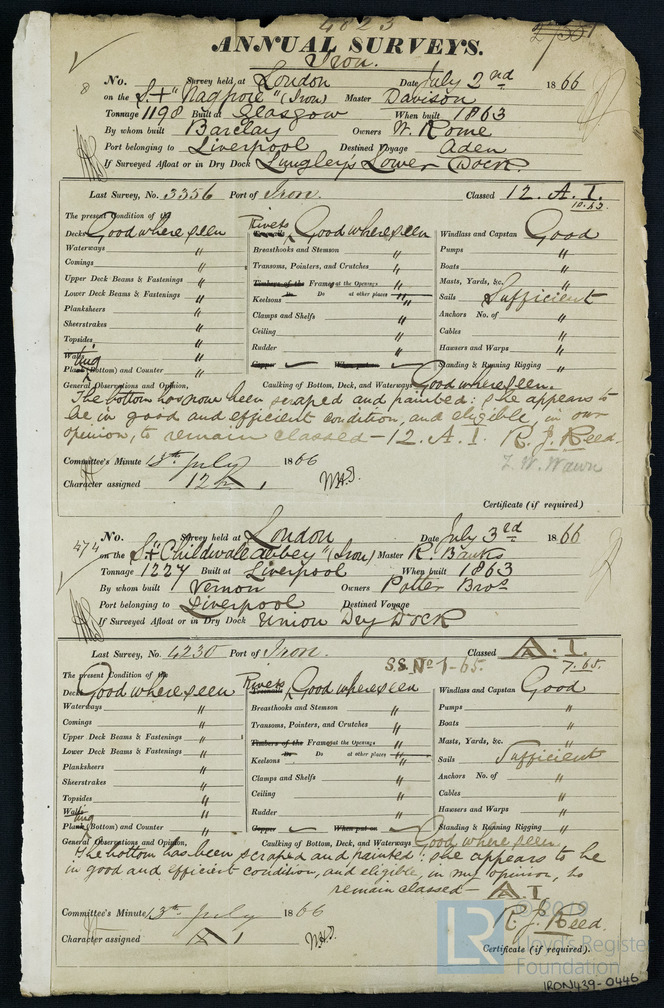 4023
27501
ANNUAL SURVEYS.
Iron.
8
No. Survey held at London Date July 2nd 1866
on the S. "Nagpore" (Iron) Master Davison
Tonnage 1198 Built at Glasgow When built 1863
By whom built Barclay Owners W. Rome
Port belonging to Liverpool Destined Voyage Aden
If Surveyed Afloat or in Dry Dock Lungley's Lower Dock.
Last Survey, No. 3356 Port of Iron. Classed 12. A. I.
10.63
The present Condition of the
Decks Good where seen Rivets Good where seen Windlass and Capstan Good
Waterways " Breasthooks and Stemson " Pumps "
Comings " Transoms, Pointers, and Crutches " Boats "
Upper Deck Beams & Fastenings " Timbers of the Frames at the Openings Masts, Yards, &c. "
Lower Deck Beams & Fastenings " Do. Do at other places " Sails Sufficient
Planksheers " Keelsons " Anchors No. of "
Sheerstrakes " Clamps and Shelfs " Cables "
Topsides " Ceiling " Hawsers and Warps "
Wales " Rudder " Standing & Running Rigging "
Plating (Bottom) and Counter " Copper When put on
General Observations and Opinion, Caulking of Bottom, Deck, and Waterways Good where seen.
The bottom has now been scraped and painted: she appears to
be in good and efficient condition, and eligible, in our
opinion, to remain classed - 12. A. I. R. J. Reed.
Committee's Minute 13th July 1866 J. W. Wawn
Character assigned 12 A 1
Certificate (if required)
474
No. Survey held at London Date July 3rd 1866
on the S. "Childwall Abbey" (Iron) Master R. Banks
Tonnage 1227 Built at Liverpool When built 1863
By whom built Vernon Owners Potter Bros
Port belonging to Liverpool Destined Voyage
If Surveyed Afloat or in Dry Dock Union Dry Dock
Last Survey, No. 4230 Port of Iron. Classed A. I.
S.S. No 1-65. 7.65.
The present Condition of the
Decks Good where seen Rivets Good where seen Windlass and Capstan Good
Waterways " Breasthooks and Stemson " Pumps "
Comings " Transoms, Pointers, and Crutches " Boats "
Upper Deck Beams & Fastenings " Timbers of the Frames at the Openings Masts, Yards, &c. "
Lower Deck Beams & Fastenings " Do. Do at other places " Sails Sufficient
Planksheers " Keelsons " Anchors No. of "
Sheerstrakes " Clamps and Shelfs " Cables "
Topsides " Ceiling " Hawsers and Warps "
Wales " Rudder " Standing & Running Rigging "
Plating (Bottom) and Counter " Copper When put on
General Observations and Opinion, Caulking of Bottom, Deck, and Waterways Good where seen.
The bottom has been scraped and painted: she appears to be
in good and efficient condition, and eligible, in my opinion, to
remain classed - A I
Committee's Minute 13th July 1866 R. J. Reed.
Character assigned A 1
Certificate (if required).
LR
© 2019
Lloyd's Register
Foundation
IRON439-0446